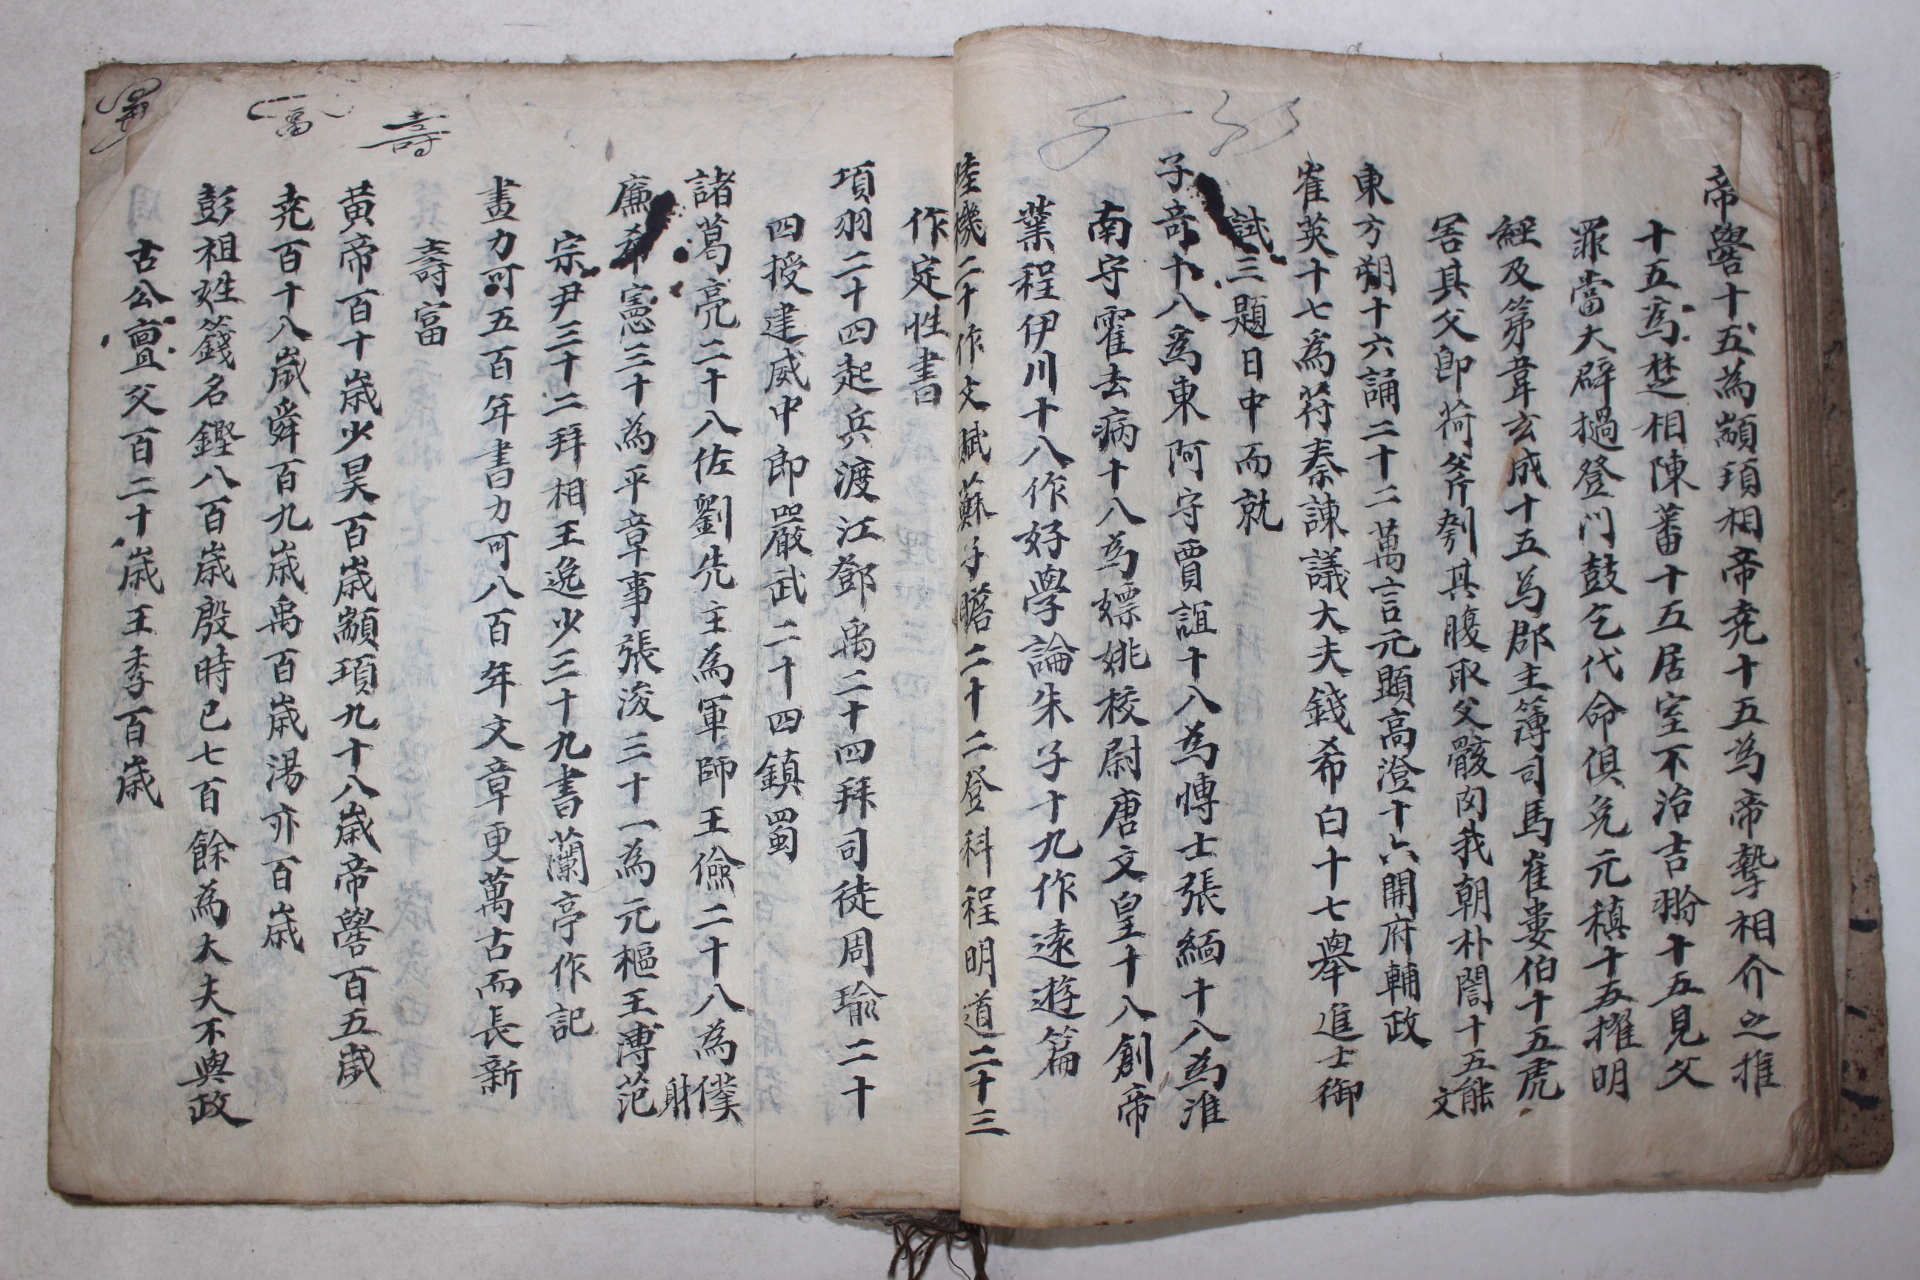 帝嚳十五為顓頊相帝堯十五為帝摯相介之推
十五為楚相陳蕃十五居室不治吉翂十五見父
罪當大辟撾登門鼓乞代命俱免元稹十五擢明
經及第韋玄成十五為郡主簿司馬崔婁伯十五虎
害其父即荷斧刳其腹取父骸肉我朝朴誾十五能文
東方朔十六誦二十二萬言元顯高澄十六開府輔政
崔英十七為苻秦諫議大夫錢希白十七舉進士御
試三題日中而就
子奇十八為東阿守賈誼十八為博士張緬十八為淮
南守霍去病十八為嫖姚校尉唐文皇十八創帝
業程伊川十八作好學論朱子十九作遠遊篇
陸機二十作文賦蘇子瞻二十二登科程明道二十三
作定性書
項羽二十四起兵渡江鄧禹二十四拜司徒周瑜二十
四授建威中郎嚴武二十四鎮蜀
諸葛亮二十八佐劉先主為軍師王儉二十八為僕射
廉希憲三十為平章事張浚三十一為元樞王溥范
宗尹三十二拜相王逸少三十九書蘭亭作記
畫力可五百年書力可八百年文章更萬古而長新
壽富
壽
富
黃帝百十歲少昊百歲顓頊九十八歲帝嚳百五歲
堯百十八歲舜百九歲禹百歲湯亦百歲
彭祖姓籛名鏗八百歲殷時已七百餘為大夫不與政
古公亶父百二十歲王季百歲